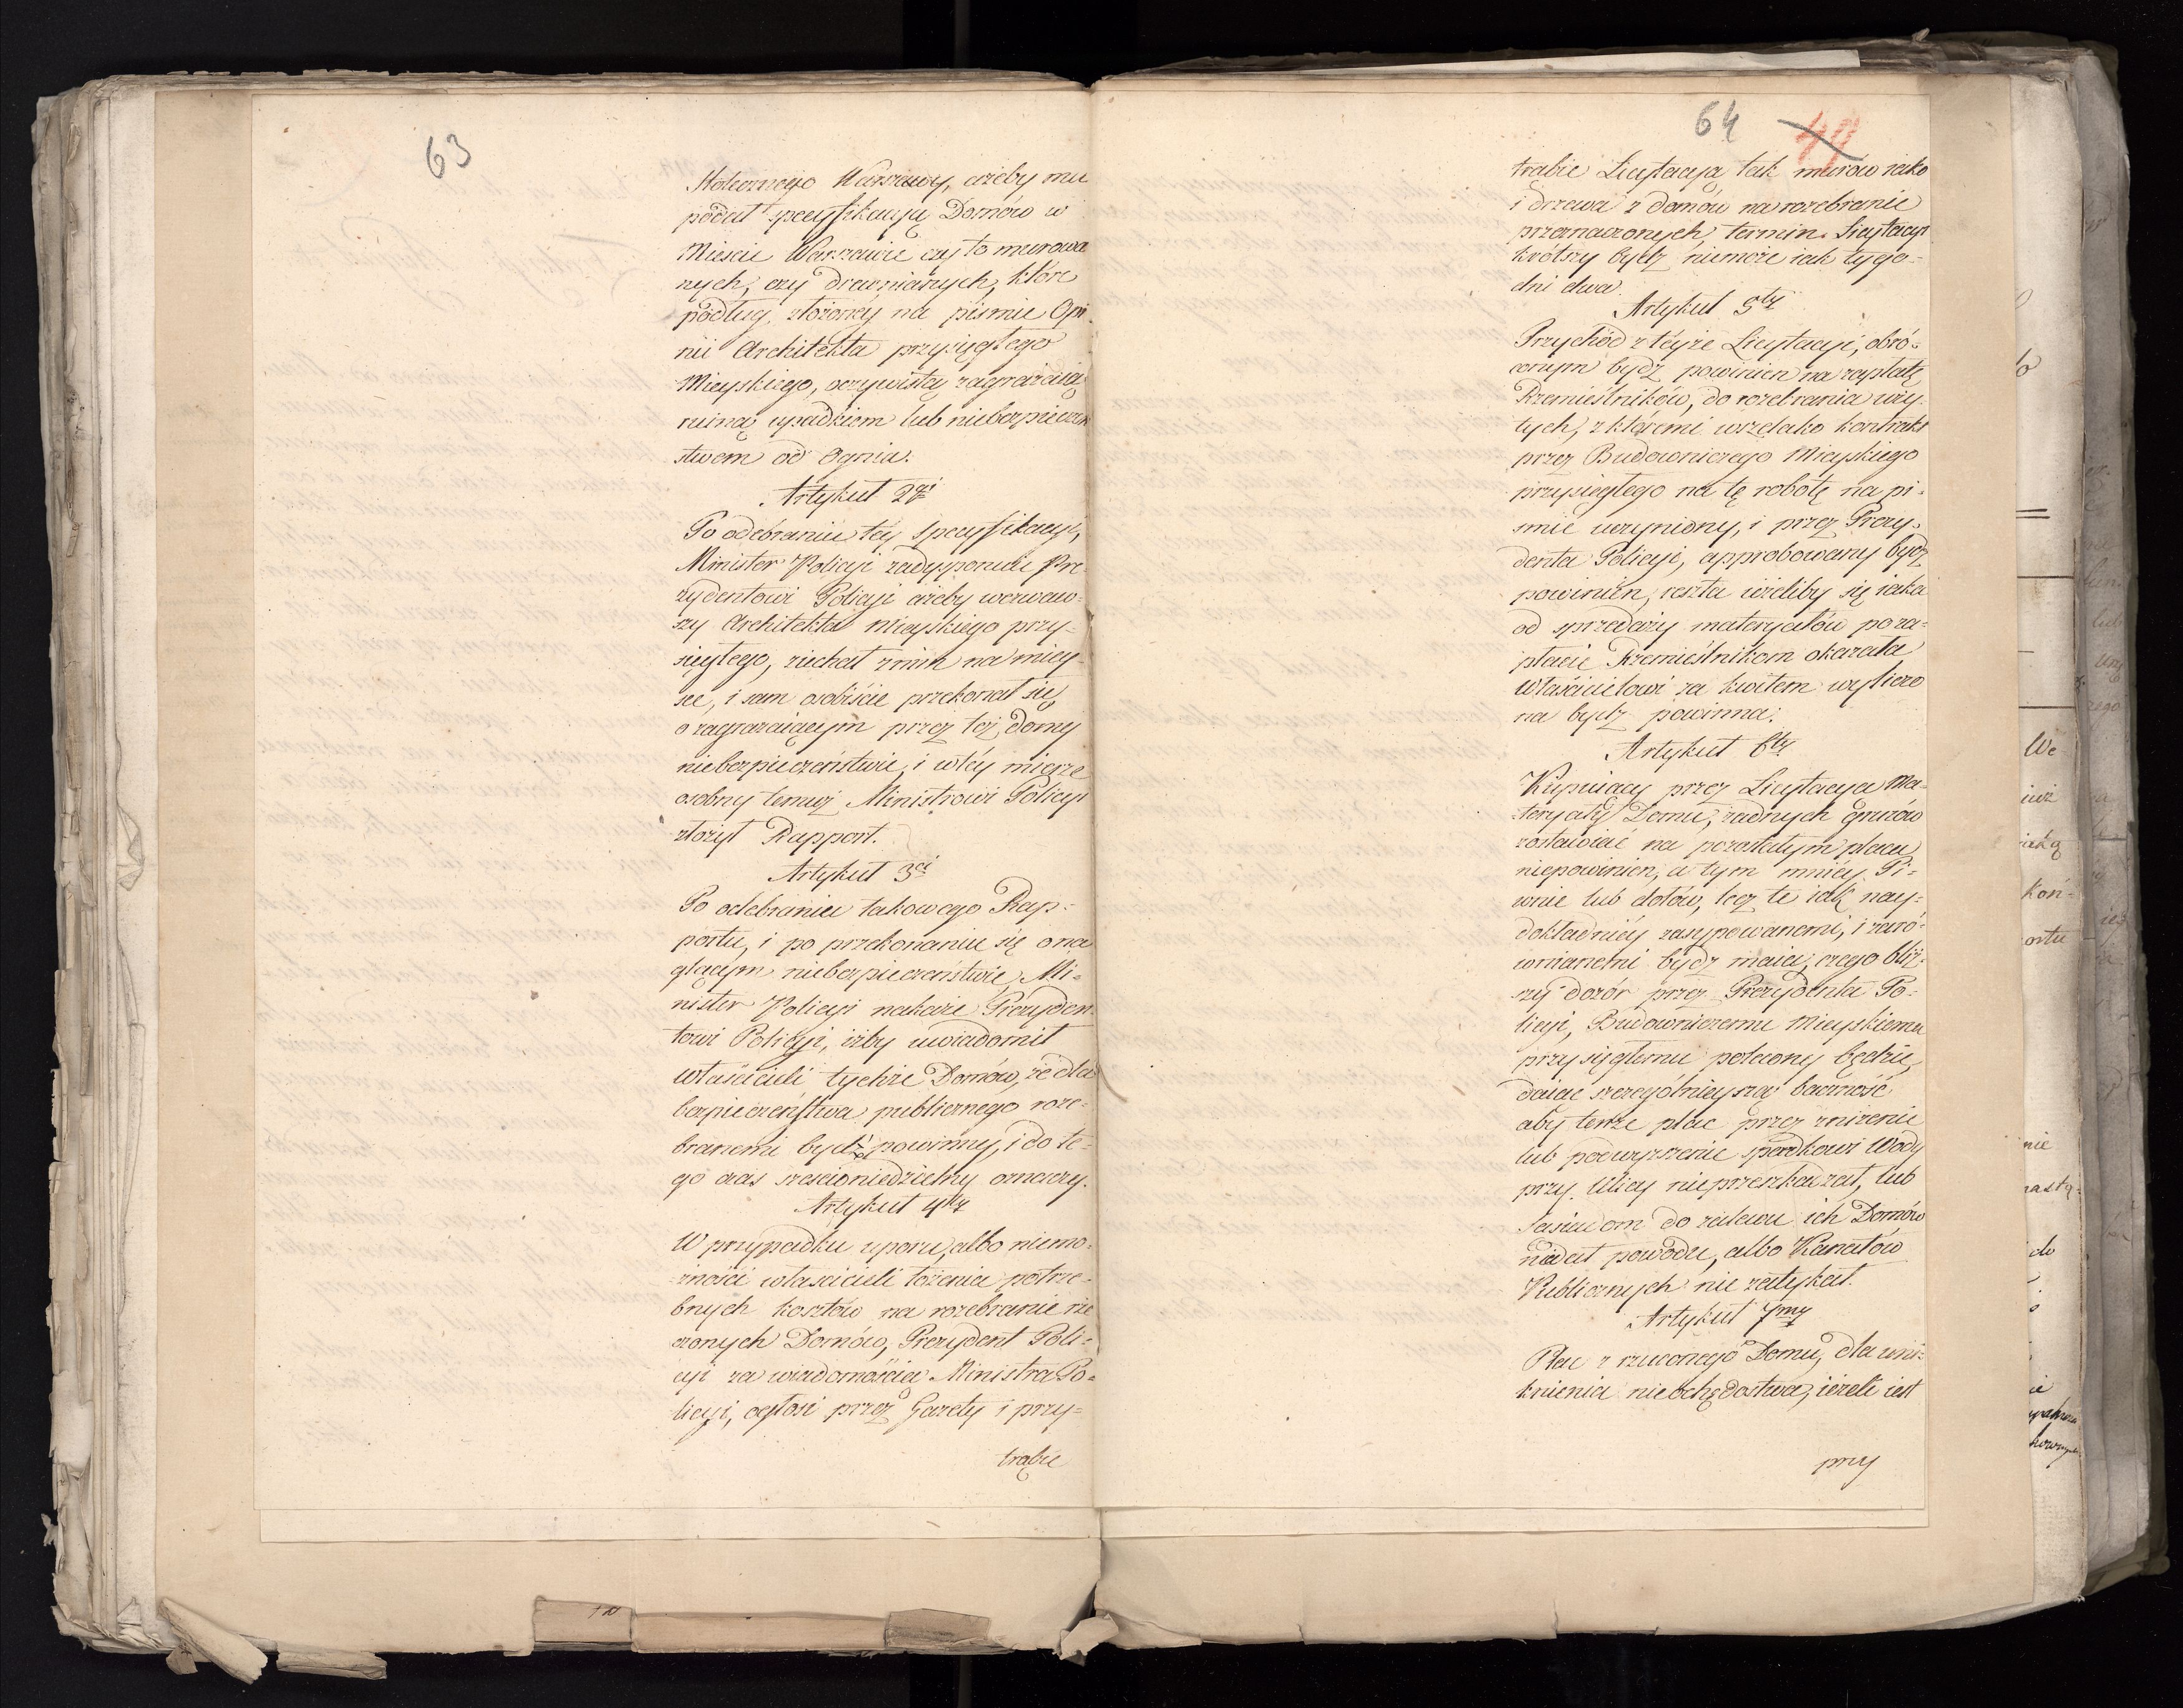 63
Stołecznego Warszawy, ażeby mu
podał specyfikacyą Domów w
Mieście Warszawie czy to murowa
nych, czy drewnianych, które
podług złożoney na piśmie Opi
nii Architekta przysięgłego
Mieyskiego, oczywistą zagrażaią
ruiną upadkiem lub niebezpieczeń
stwem od Ognia.
Artykuł 2gi
Po odebraniu tey specyfikacyi,
Minister Policyi zadysponuie Pre
zydentowi Policyi ażeby wezwaw-
szy Architekta mieyskiego przy-
sięgłego, ziechał z nim na miey-
sce, i sam osobiście przekonał się
o zagrażaiącym przez też domy
niebezpieczeństwie, i w tey mierze
osobny temuż Ministrowi Policyi
złożył Rapport.
Artykuł 3ci
Po odebraniu takowego Rap-
portu, i po przekonaniu się o na
glącym niebezpieczeństwie, Mi-
nister Policyi nakaże Prezyden-
towi Policyi, iżby uwiadomił
właścicieli tychże Domów, że dla
bezpieczeństwa publicznego roze-
branemi bydź powinny, i do te-
go czas sześcioniedzielny oznaczy.
Artykuł 4ty
W przypadku uporu, albo niemo-
żności właścicieli łożenia potrze-
bnych kosztów na rozebranie rze
czonych Domów, Prezydent Poli-
cyi za wiadomością Ministra Po-
licyi, ogłosi przez Gazety i przy-
trąbie
64
49
trąbie Licytacyą tak murów iako
i drzewa z domów na rozebranie
przeznaczonych, termin Licytacyi
krótszy bydz niemoże iak tygo-
dni dwa.
Artykuł 5ty
Przychód z teyże Licytacyi, obró-
conym bydz powinien na zapłatę
Rzemieślników, do rozebrania uży-
tych, z któremi wszelako kontrakt
przez Budowniczego Mieyskiego
przysięgłego na tę robotę na pi-
śmie uczyniony, i przez Prezy-
denta Policyi, approbowany bydz
powinien, reszta ieżeliby się iaka
od sprzedaży materyałów po za-
płacie Rzemieślnikom okazała
Właścicielowi za kwitem wyliczo
na bydz powinna.
Artykuł 6ty
Kupuiący przez Licytacyą Ma-
teryały Domu, żadnych gruzów
zostawiać na pozostałym placu
niepowinien, a tym mniey Pi-
wnic lub dołów, lecz te iak nay-
dokładniey zasypowanemi, i zaró-
wnianemi bydz maią, czego bliż-
szy dozór przez Prezydenta Po-
licyi, Budowniczemu Mieyskiemu
przysięgłemu polecony będzie,
daiąc szczególnieyszą baczność
aby tenże plac przez zniżenie
lub podwyższenie spadkowi Wody
przy Ulicy nieprzeszkadzał, lub
Sąsiadom do zalewu ich Domów
niedał powodu, albo Kanałów
Publicznych nie zatykał.
Artykuł 7my
Plac z rzuconego Domu, dla uni-
knienia nieochędostwa, ieżeli iest
przy